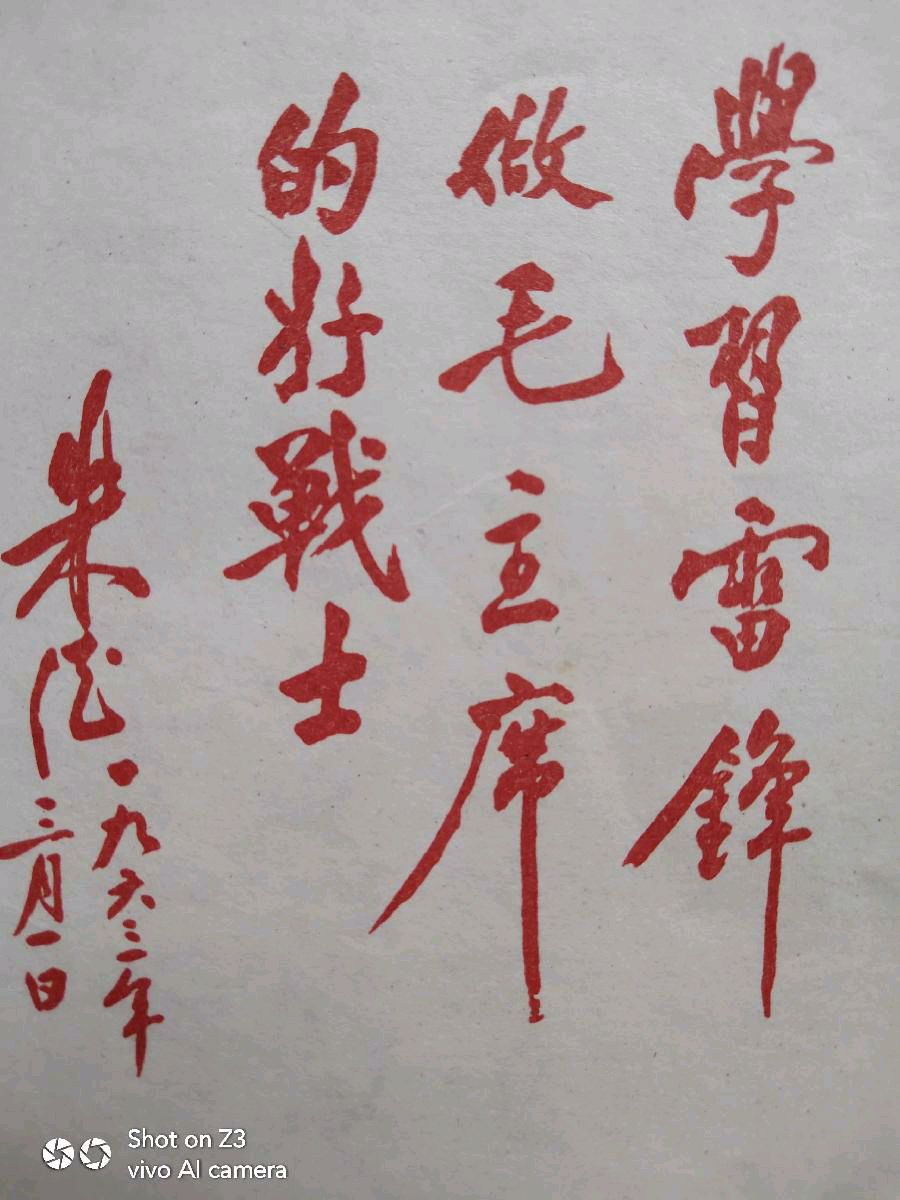 學習雷鋒
做毛主席
的好戰士
朱德
一九六三年
三月一日
Shot on Z3
vivo AI camera